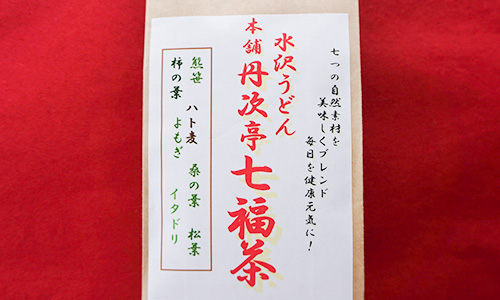 七つの自然素材を
美味しくブレンド
毎日を健康元気に!
水沢うどん
本舗 丹次亭 七福茶
熊笹 ハト麦 桑の葉 松葉
柿の葉 よもぎ イタドリ